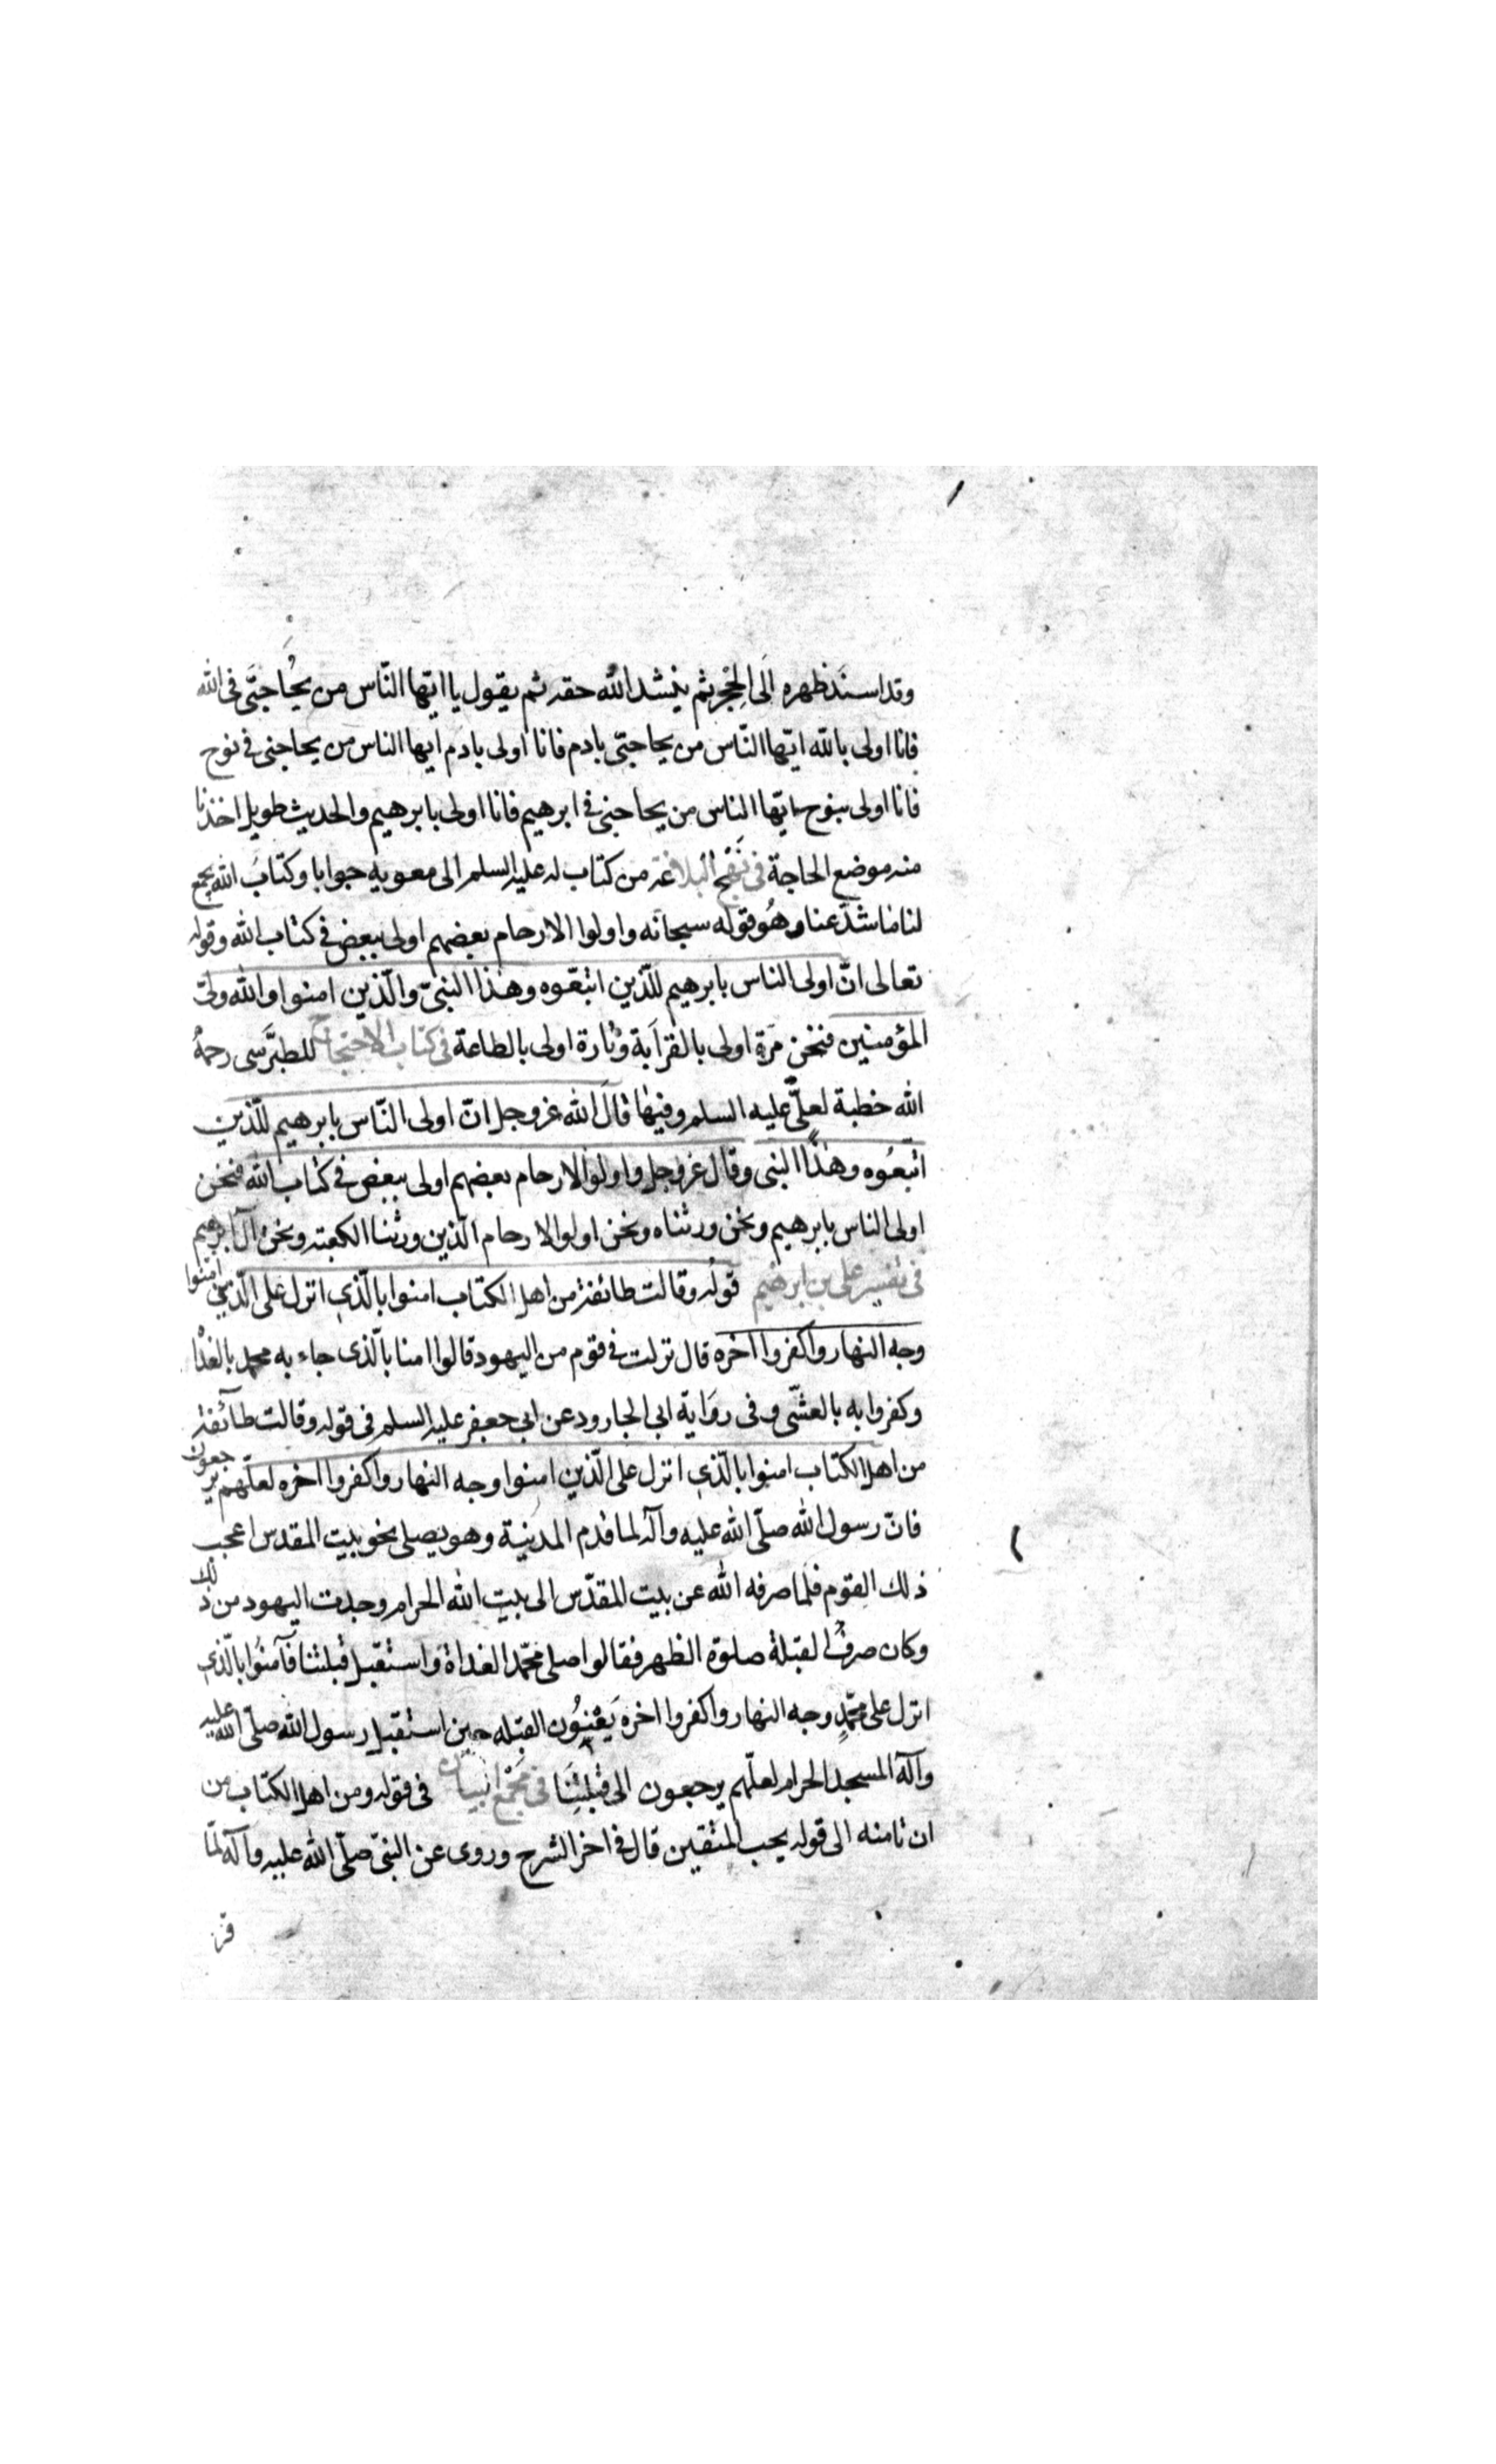 وقد اسند ظهره الى الحجر ثم ينشد الله حقه ثم يقول يا ايها الناس من يحاجني فى الله
فانا اولى بالله ايها الناس من يحاجني بادم فانا اولى بادم ايها الناس من يحاجنى فى نوح
فانا اولى بنوح ايها الناس من يحاجنى فى ابرهيم فانا اولى بابرهيم والحديث طويل اخذنا
منه موضع الحاجة فى نهج البلاغة من كتاب له عليه السلم الى معوية جوابا وكتاب الله يجمع
لنا ما شذ عنا وهو قوله سبحانه واولوا الارحام بعضهم اولى ببعض فى كتاب الله وقوله
تعالى انّ اولى الناس بابرهيم للّذين اتبعوه وهذا النبىّ والّذين امنوا والله ولىّ
المؤمنين فنحن مرة اولى بالقرابة وتارة اولى بالطاعة فى كتاب الاحتجاج للطبرسى رحمة
الله خطبة لعلىّ عليه السلم وفيها قال الله عز وجل انّ اولى النّاس بابرهيم للّذين
اتبعوه وهذا النبى وقال عز وجل واولوا الارحام بعضهم اولى ببعض فى كتاب الله فنحن
اولى الناس بابرهيم ونحن ورثناه ونحن اولوا الارحام الّذين ورثنا الكعبة ونحن آل ابرهيم
فى تفسير على بن ابرهيم قوله وقالت طائفة من اهل الكتاب امنوا بالّذى انزل على الّذين امنوا
وجه النهار واكفروا اخره قال نزلت فى قوم من اليهود قالوا امنا بالّذى جاء به محمد بالغداة
وكفروا به بالعشّى وفى رواية ابى الجارود عن ابى جعفر عليه السلم فى قوله وقالت طآئفة
من اهل الكتاب امنوا بالّذى انزل على الّذين امنوا وجه النهار واكفروا اخره لعلّهم يرجعون
فانّ رسول الله صلّى الله عليه وآله لما قدم المدينة وهو يصلى نحو بيت المقدس اعجب
ذلك القوم فلما صرفه الله عن بيت المقدّس الى بيت الله الحرام وجدت اليهود من ذلك
وكان صرف القبلة صلوة الظهر فقالوا صلى محمّد الغداة واستقبل قبلتنا فآمنوا بالّذى
انزل على محمّد وجه النهار واكفروا اخره يعنون القبله حين استقبل رسول الله صلّى الله عليه
وآله المسجد الحرام لعلّهم يرجعون الى قبلتنا فى مجمع البيان فى قوله ومن اهل الكتاب من
ان تامنه الى قوله يحب المتقين قال فى اخر الشرح وروى عن النبىّ صلّى الله عليه وآله لمّا